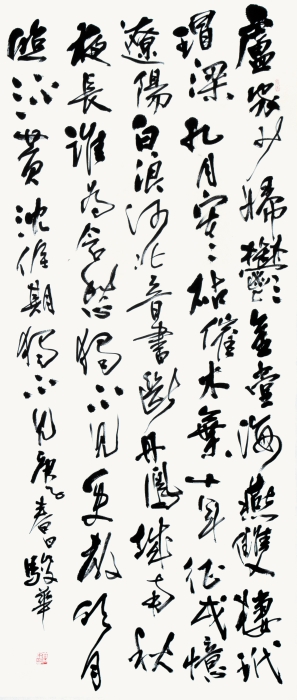 盧家少婦鬱金堂海燕雙棲玳
瑁梁九月寒砧催木葉十年征戍憶
遼陽白浪河北音書斷丹鳳城南秋
夜長誰為含愁獨不見更教明月
照流黃沈佺期獨不見庚子春日駿華